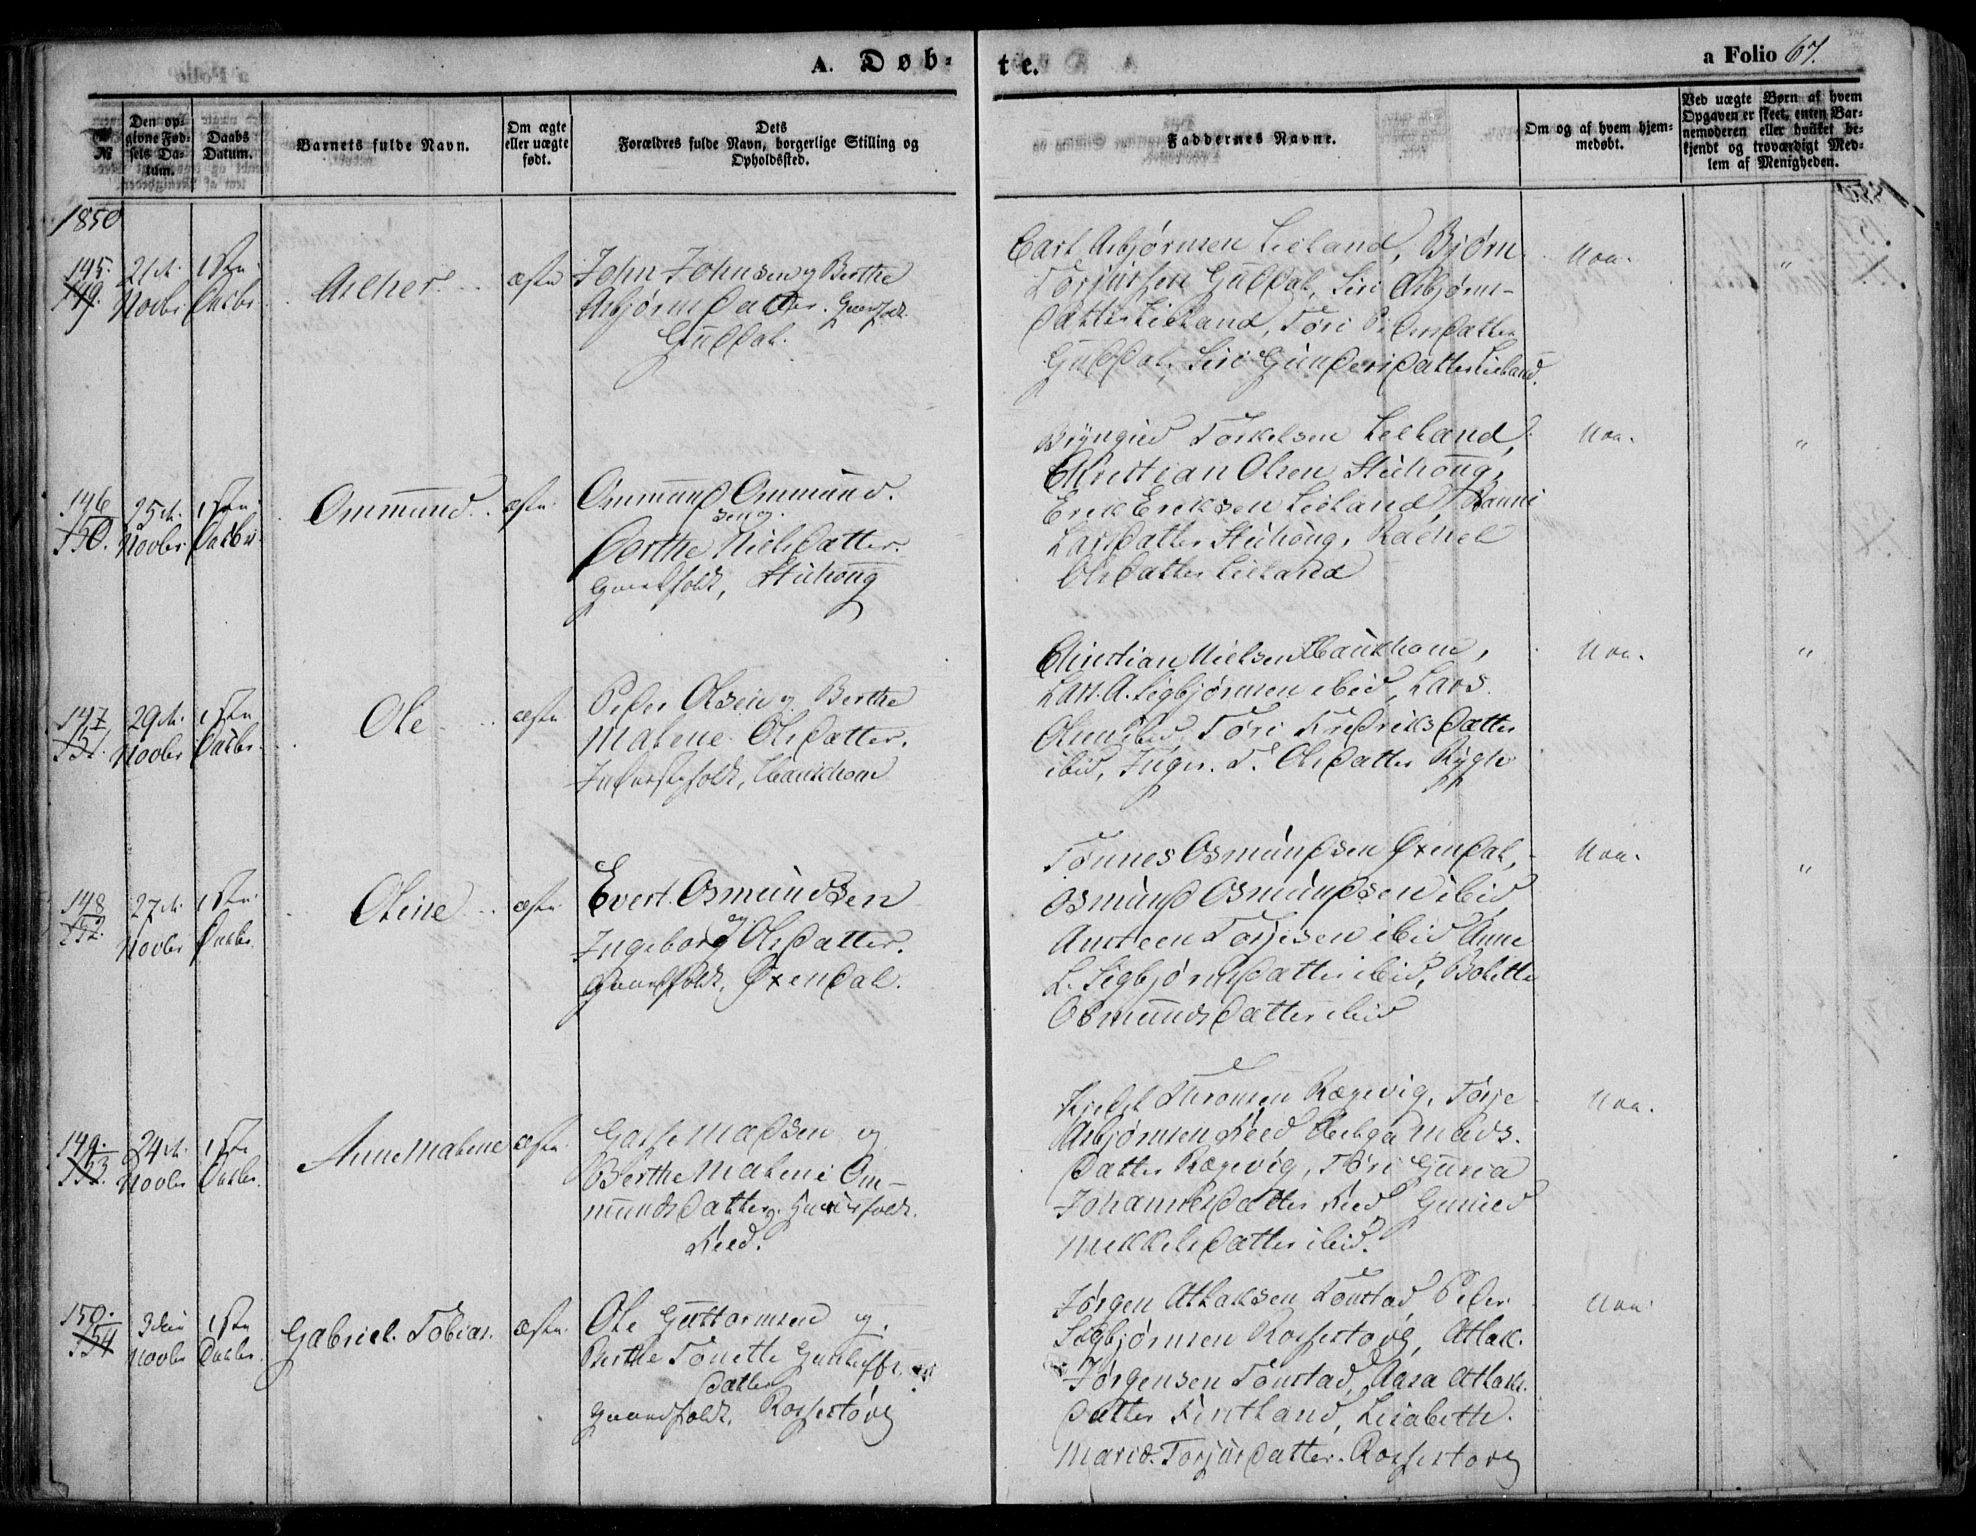 A. Døb-
te.
a Folio 67.
№
Den op-
givne Fød-
sels Da-
tum.
Daabs
Datum.
Barnets fulde Navn.
Om ægte
eller uægte
født.
Dets
Forældres fulde Navn, borgerlige Stilling og
Opholdssted.
Faddernes Navne.
Om og af hvem hjem-
medøbt.
Ved uægte Børn af hvem
Opgaven er skeet, enten Bar-
nemoderen eller hvilket be-
kjendt og troværdigt Med-
lem af Menigheden.
1850
145.
149.
21de
Novbr
1ste
Decbr
ægte
John Johnsen og Berthe
Asbjørnsdatter. Gaardfolk
Guddal.
Carl Asbjørnsen Leeland, Bjørn
Guddal, Siri Asbjørns-
datter Leeland, Tøri Pedersdatter
Guddal, Siri Gundersdatter Leeland.
Nei.
"
146
150.
25de
Novbr
1ste
Decbr
Ommund
ægte
Ommund Ommund-
sen og
Berthe Nielsdatter.
Gaardfolk, Stuhoug
Bryngild Torkelsen Leeland,
Christian Olsen Stuhoug,
Erik Eriksen Leeland,
Larsdatter Stuhoug, Rachel
Olsdatter Leeland
Nei.
"
147
151.
29de
Novbr
1ste
Decbr
Ole
ægte
Peder Olsen og Berthe
Malene Olsdatter.
Inderstefolk, Haukhom
Christian Nielsen Haukhom,
Lars A. Sigbjørnsen ibid, Lars
Olsen ibid, Tøri Fredriksdatter
ibid, Inger T. Olsdatter Rygle
Nei.
"
148
152.
27de
Novbr
1ste
Decbr
Oline
ægte
Evert Osmundsen
og
Ingeborg Olsdatter.
Gaardfolk, Øxendal.
Tønnes Osmundsen Øxendal,
Osmund Osmundsen ibid,
Ansteen Torjesen ibid Anne
L. Sigbjørnsdatter ibid, Bolette
Osmundsdatter ibid
Nei.
"
149.
153.
24de
Novbr
1ste
Decbr.
Anne Malene
ægte
Madsen og
Berthe Malene Om-
mundsdatter, Huusfolk.
Reed.
Rægevig, Torje
Asbjørnsen Reed Helga Mads-
datter Rægevig, Tøri Guria
Johannesdatter Reed Guned
Mekkelsdatter ibid.
Nei.
150.
154
3die
Novbr
1ste
Decbr.
Gabriel Tobias.
ægte
Ole Guttormsen og
Berthe Tonette
datter
Gaardfolk. Rossestorg
Jørgen Atlaksen Tonstad Peder
Sigbjørnsen Rossestorg, Atlak
Jørgensen Tonstad, Aasa Atlaks-
datter Fintland, Lisabeth
Marie Torjusdatter Rossestorg
Nei